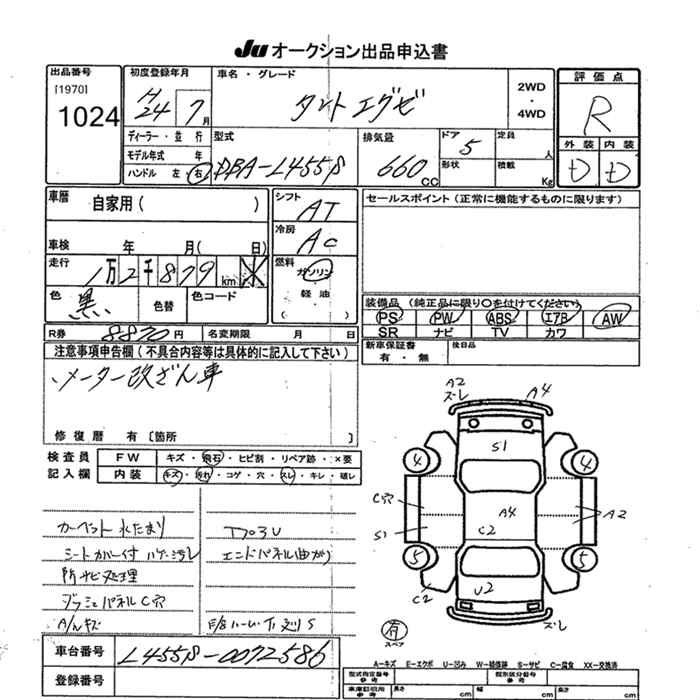 Ju オークション出品申込書
出品番号
[1970]
1024
初度登録年月
H24 7月
車名・グレード
タント エグゼ
2WD
・
4WD
評価点
R
外装 内装
D D
ディーラー・並行
モデル年式 年
ハンドル 左・右
型式
DBA-L455S
排気量
660 CC
ドア 5
形状
定員 人
積載 Kg
車歴 自家用( )
シフト AT
セールスポイント(正常に機能するものに限ります)
車検 年 月( 日)
冷房 AC
走行 1万2千879km
燃料
ガソリン
軽油
( )
色 黒 色替 色コード
装備品(純正品に限り○を付けてください)
PS PW ABS エアB AW
SR ナビ TV カワ
R券 8870円 名変期限 月 日
新車保証書
有・無
後日品
注意事項申告欄(不具合内容等は具体的に記入して下さい)
メーター改ざん車
修復歴 有 〔箇所 〕
検査員
記入欄
FW キズ・飛石・ヒビ割・リペア跡・×要
内装 キズ・汚れ・コゲ・穴・スレ・キレ・破レ
カーペット水たまり
シートカバー付
エンドパネル曲がり
C穴
A/Wキズ
A2
ズレ
A4
S1
4 4
C穴
A4
A2
S1
C2
5 5
C2
U2
ズレ
有
スペア
車台番号 L455S-0072586
登録番号
A-キズ E-エクボ U-凹み W-補修跡 S-サビ C-腐食 XX-交換済
型式指定番号
参考
類別区分番号
参考
車庫証明用
参考
長さ cm 幅 cm 高さ cm